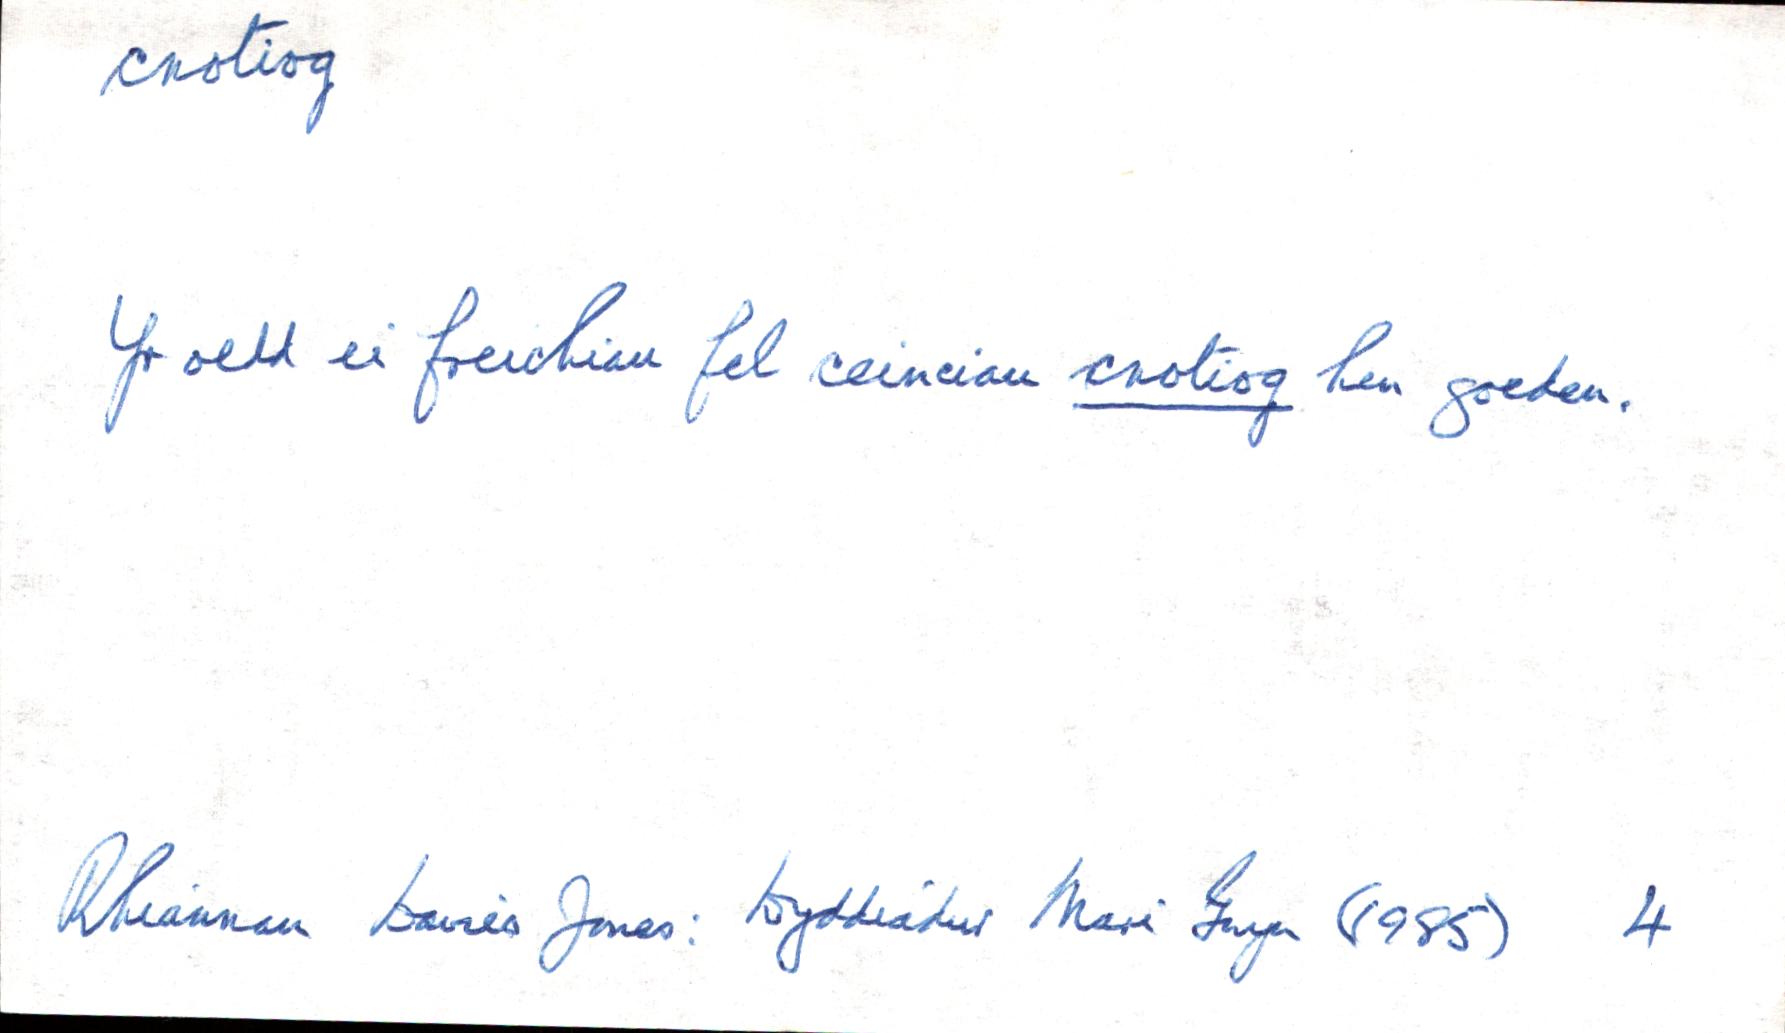 cnotiog
Yr oedd ei freichiau fel ceinciau cnotiog hen goeden.
Rhiannon Davies Jones: Dyddiadur Mari Gwyn (1985) 4